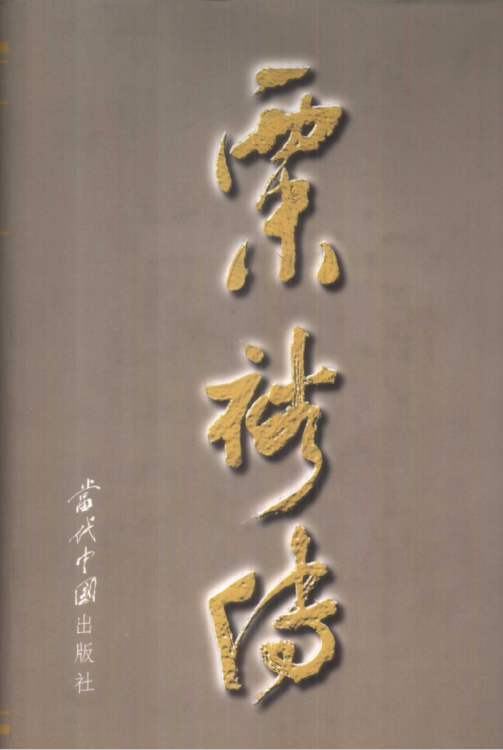 粟裕傳
當代中國出版社